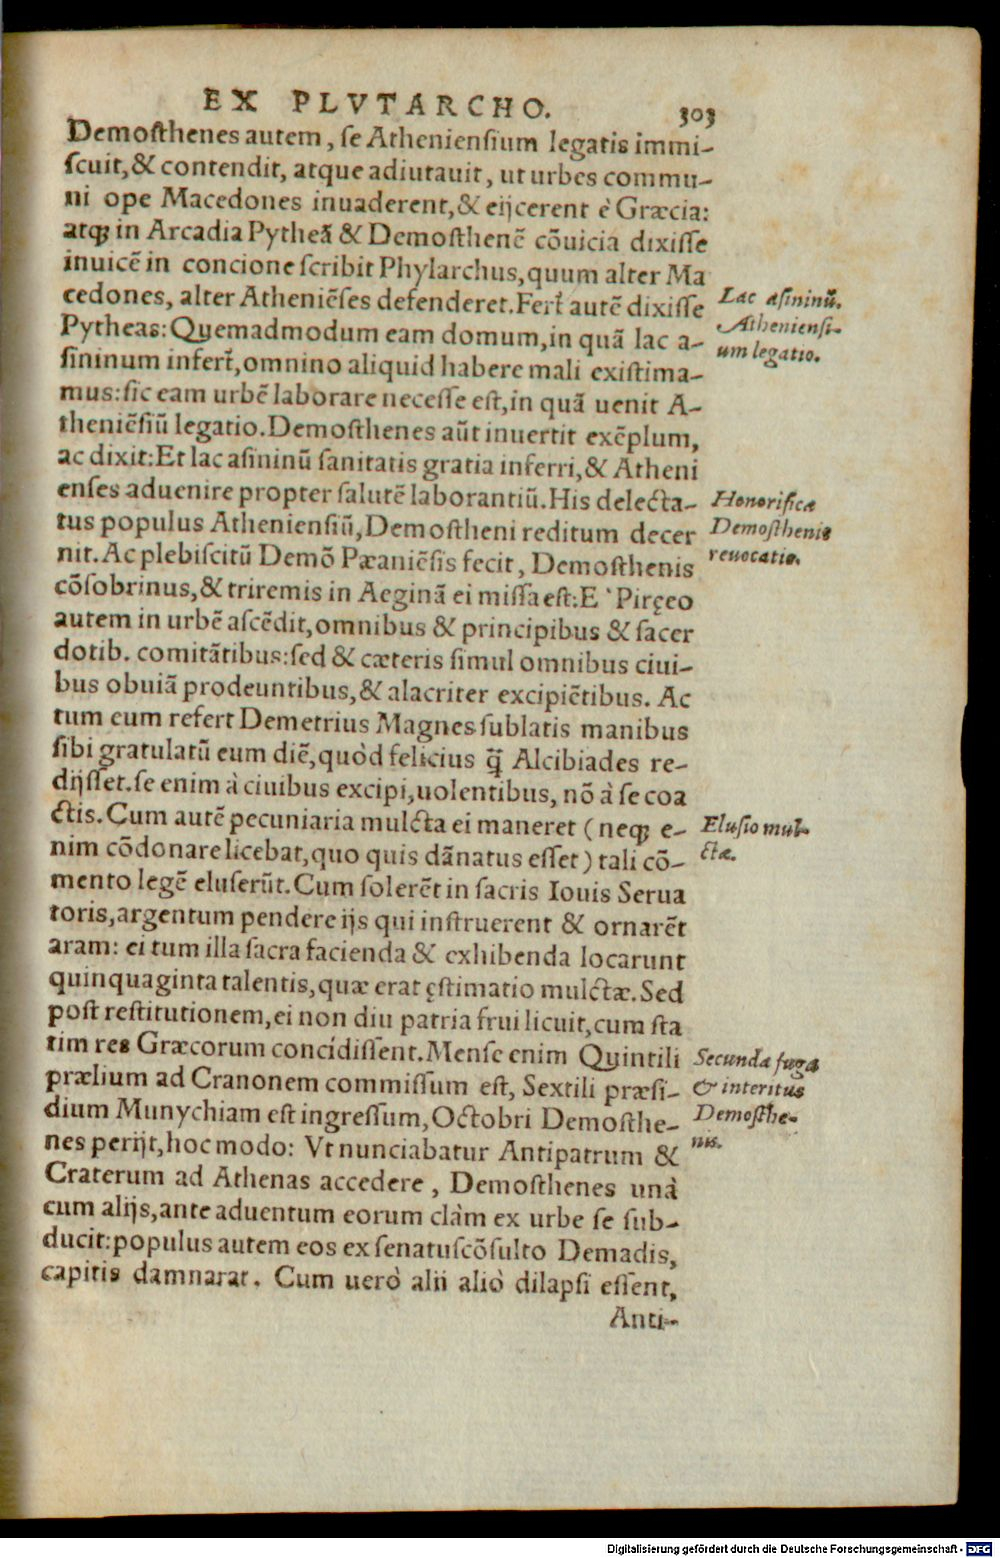 EX PLVTARCHO. 303
Demosthenes autem, se Atheniensium legatis immi-
scuit,& contendit, atque adiutauit, ut urbes commu-
ni ope Macedones inuaderent,& eijcerent è Græcia:
atq; in Arcadia Pytheã & Demosthenẽ cõuicia dixisse
inuicẽ in concione scribit Phylarchus, quum alter Ma
cedones, alter Atheniẽses defenderet. Fert᷑ autẽ dixisse
Pytheas: Quemadmodum eam domum, in quã lac a-
sininum infert᷑, omnino aliquid habere mali existima-
mus: sic eam urbẽ laborare necesse est, in quã uenit A-
theniẽsiũ legatio. Demosthenes aũt inuertit exẽplum,
ac dixit: Et lac asininũ sanitatis gratia inferri,& Atheni
enses aduenire propter salutẽ laborantiũ. His delecta-
tus populus Atheniensiũ, Demostheni reditum decer
nit. Ac plebiscitũ Demõ Pæaniẽsis fecit, Demosthenis
cõsobrinus,& triremis in Aeginã ei missa est: E` Piręeo
autem in urbẽ ascẽdit, omnibus & principibus & sacer
dotib. comitãtibus: sed & cæteris simul omnibus ciui-
bus obuiã prodeuntibus,& alacriter excipiẽtibus. Ac
tum eum refert Demetrius Magnes sublatis manibus
sibi gratulatũ eum diẽ, quòd felicius q̃ Alcibiades re-
dijsset. se enim à ciuibus excipi, uolentibus, nõ à se coa
ctis. Cum autẽ pecuniaria mulcta ei maneret (neq; e-
nim cõdonare licebat, quo quis dãnatus esset) tali cõ-
mento legẽ eluserũt. Cum solerẽt in sacris Iouis Serua
toris, argentum pendere ijs qui instruerent & ornarẽt
aram: ei tum illa sacra facienda & exhibenda locarunt
quinquaginta talentis, quæ erat ęstimatio mulctæ. Sed
post restitutionem, ei non diu patria frui licuit, cum sta
tim res Græcorum concidissent. Mense enim Quintili
prælium ad Cranonem commissum est, Sextili præsi-
dium Munychiam est ingressum, Octobri Demosthe-
nes perijt, hoc modo: Vt nunciabatur Antipatrum &
Craterum ad Athenas accedere, Demosthenes unà
cum alijs, ante aduentum eorum clàm ex urbe se sub-
ducit: populus autem eos ex senatuscõsulto Demadis,
capitis damnarat. Cum uerò alii aliò dilapsi essent,
Anti-
Lac asininũ.
Atheniensi-
um legatio.
Honorifica
Demosthenis
reuocatio.
Elusio mul-
ctæ.
Secunda fuga
& interitus
Demosthe-
nis.
Digitalisierung gefördert durch die Deutsche Forschungsgemeinschaft - DFG